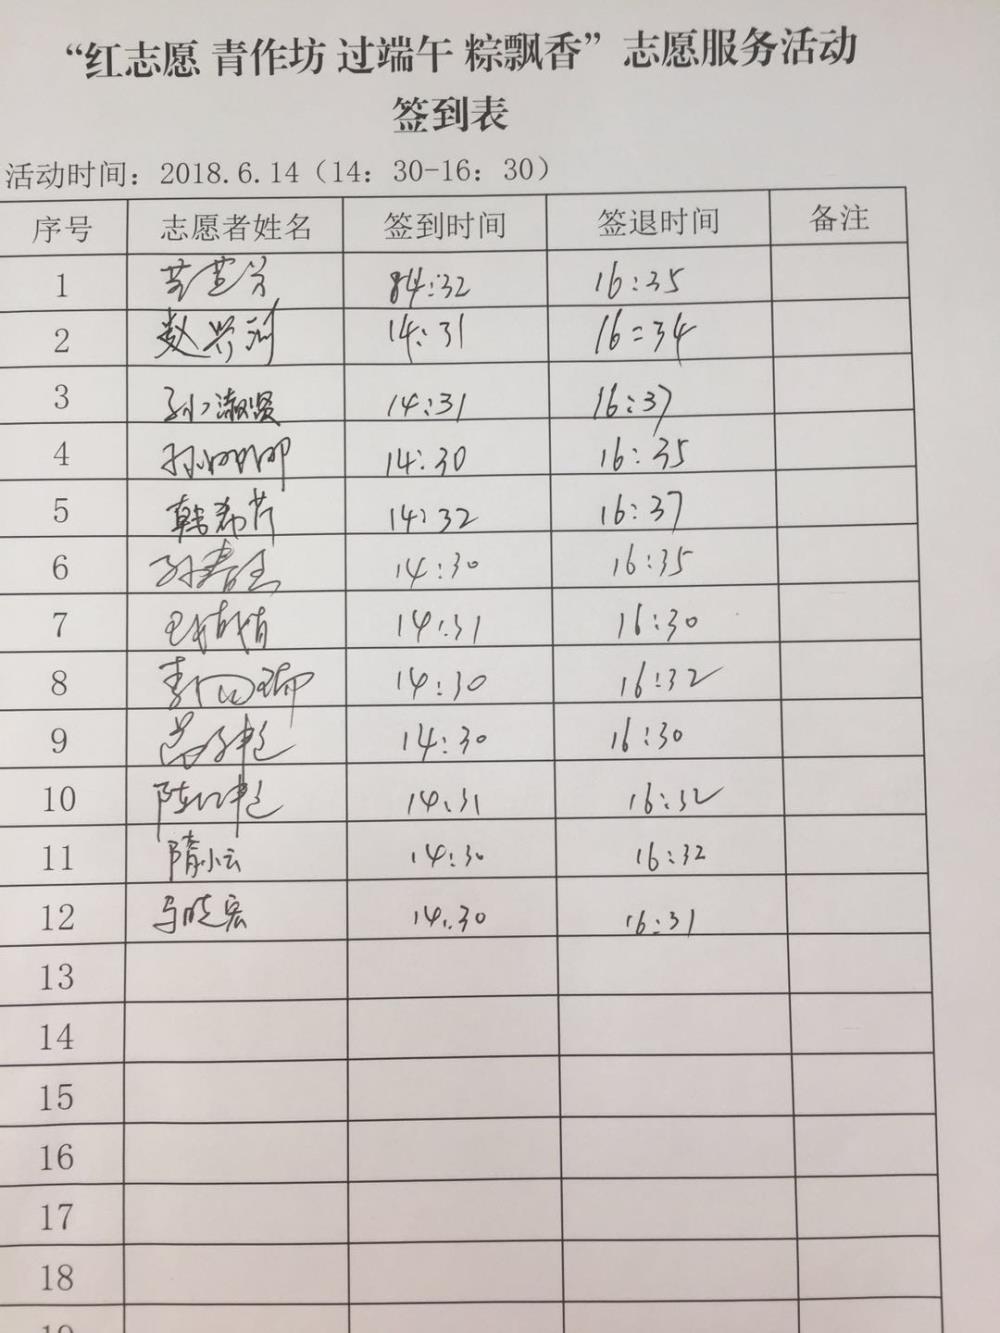 “红志愿 青作坊 过端午 粽飘香”志愿服务活动
签到表
活动时间：2018.6.14（14：30-16：30）
序号 志愿者姓名 签到时间 签退时间 备注
1 14:32 16:35
2 赵兴利 14:31 16:34
3 孙淑贤 14:31 16:37
4 孙娜娜 14:30 16:35
5 韩希芹 14:32 16:37
6 14:30 16:35
7 14:31 16:30
8 14:30 16:32
9 14:30 16:30
10 14:31 16:32
11 隋小云 14:30 16:32
12 马晓宏 14.30 16:31
13
14
15
16
17
18